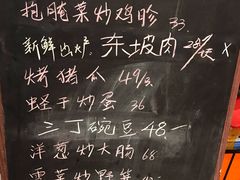 抱腌菜炒鸡胗 33.
新鲜出炉 东坡肉 28/只 X
烤猪爪 49/3
蛏干炒蛋 36
三丁豌豆 48.-
洋葱炒大肠 68
雪菜炒野笋